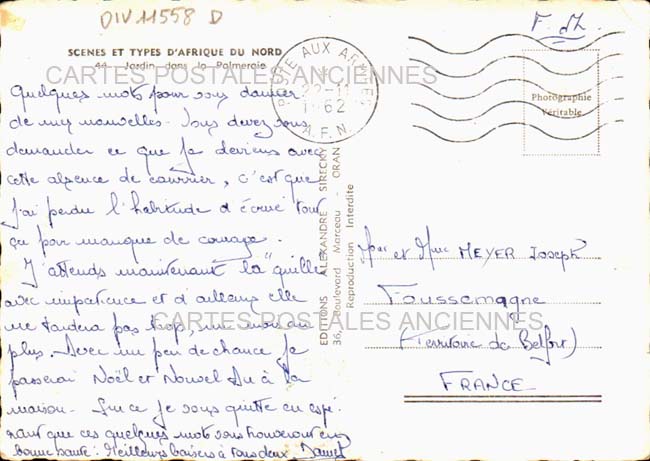 DIV 11558 D
F. M.
SCENES ET TYPES D'AFRIQUE DU NORD
44 Jardin dans la Palmeraie
CARTES POSTALES ANCIENNES
POSTE AUX ARMEES
22-11
1962
A.F.N.
Photographie
Véritable
Quelques mots pour vous donner
de mes nouvelles. Vous devez vous
demander ce que je deviens avec
cette absence de courrier, c'est que
j'ai perdu l'habitude d'écrire tout
ça par manque de courage.
J'attends maintenant la "quille"
avec impatience et d'ailleurs elle
ne tardera pas trop, un mois au
plus. Avec un peu de chance je
passerai Noël et Nouvel An à la
maison. Sur ce je vous quitte en espé-
rant que ces quelques mots vous trouveront en
bonne santé. Meilleurs baisers à tous deux. Daniel
EDITIONS ALEXANDRE SIRECKY
36, Boulevard Marceau - ORAN
Reproduction Interdite
Mr et Mme MEYER Joseph
Foussemagne
CARTES POSTALES ANCIENNES
(Territoire de Belfort)
FRANCE